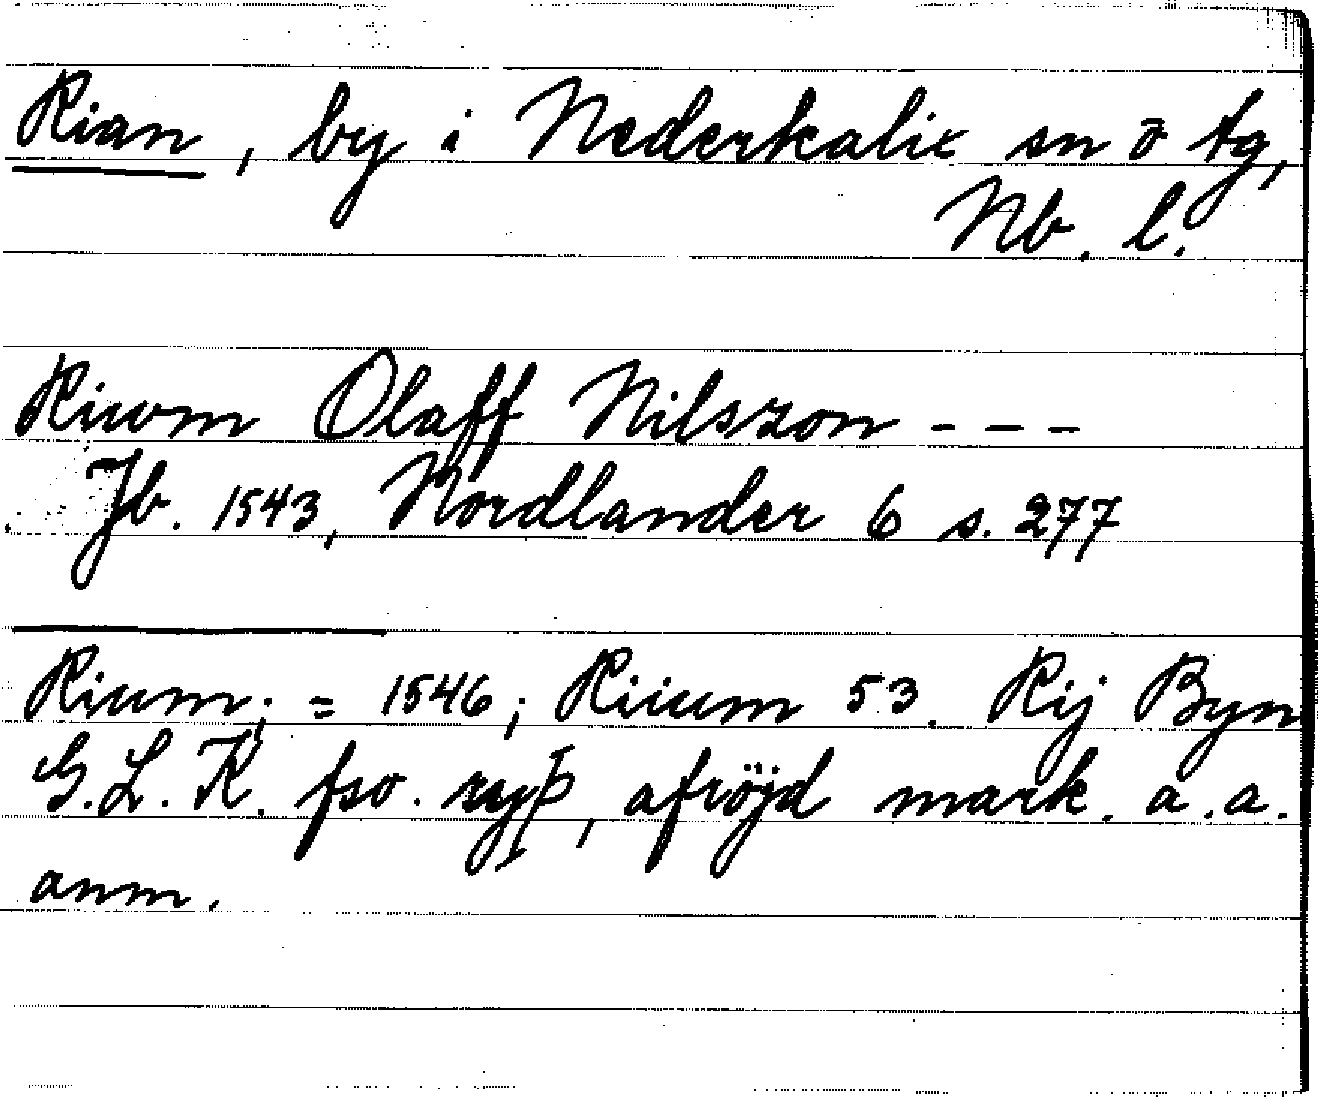 Rian, by i Nederkalix sn ö tg,
Nb. l.
Riwm Olaff Nilszon - - -
Jb. 1543, Nordlander 6 s. 277
Rium; = 1546; Riium 53. Rij Byn
G.L.K. fsv. afröjd mark. a.a.
anm.